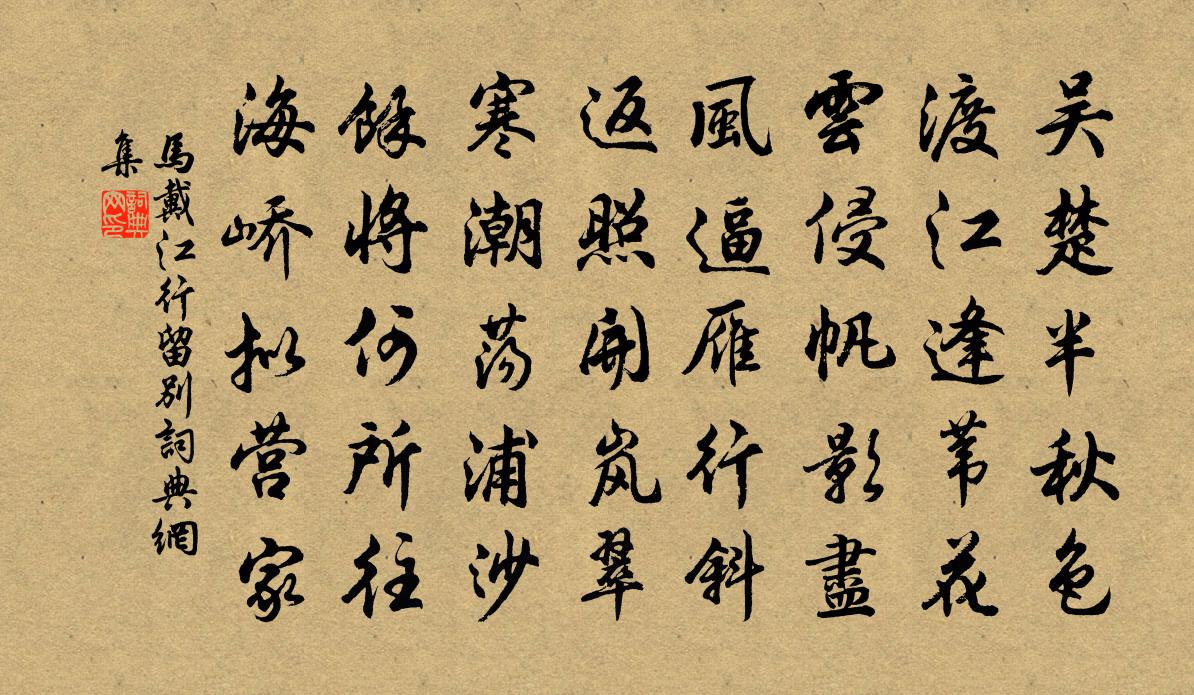 吴楚半秋色
渡江逢苇花
雲侵帆影盡
風逼雁行斜
返照開岚翠
寒潮荡浦沙
餘將何所往
海峤拟营家
馬戴江行留别詞典網
集
詞典网印